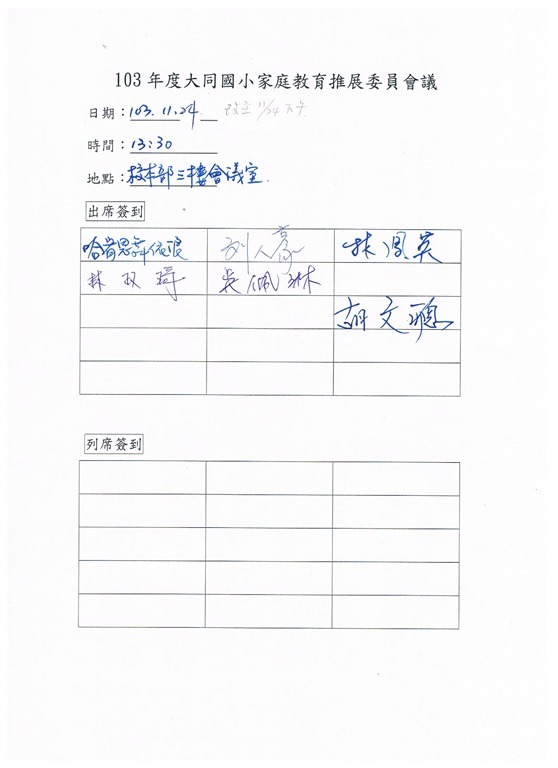 103 年度大同國小家庭教育推展委員會議
日期：103.11.24 改至 11/24 下午
時間：13:30
地點：校本部三樓會議室
出席簽到
劉人豪 林鳳英
林双 吳佩琳
胡文聰
列席簽到